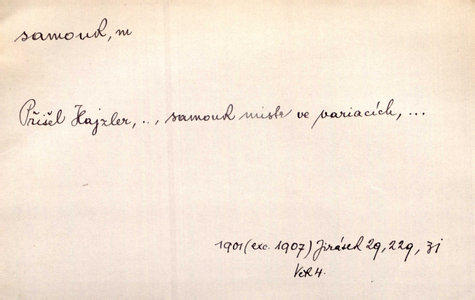 samouk, m
Přišel Hajzler, .., samouk mistr ve variacích, ...
1901 (exc. 1907) Jirásek 29, 229, zj